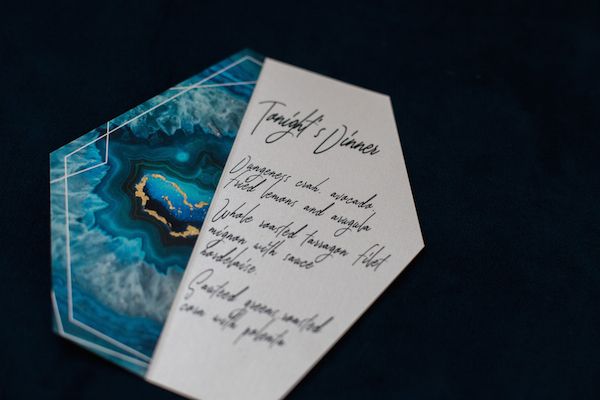 Tonight's Dinner
Dungeness crab, avocado
fried lemons and arugula
Whole roasted tarragon filet
mignon with sauce
bordelaise
Sauteed greens, roasted
corn with polenta